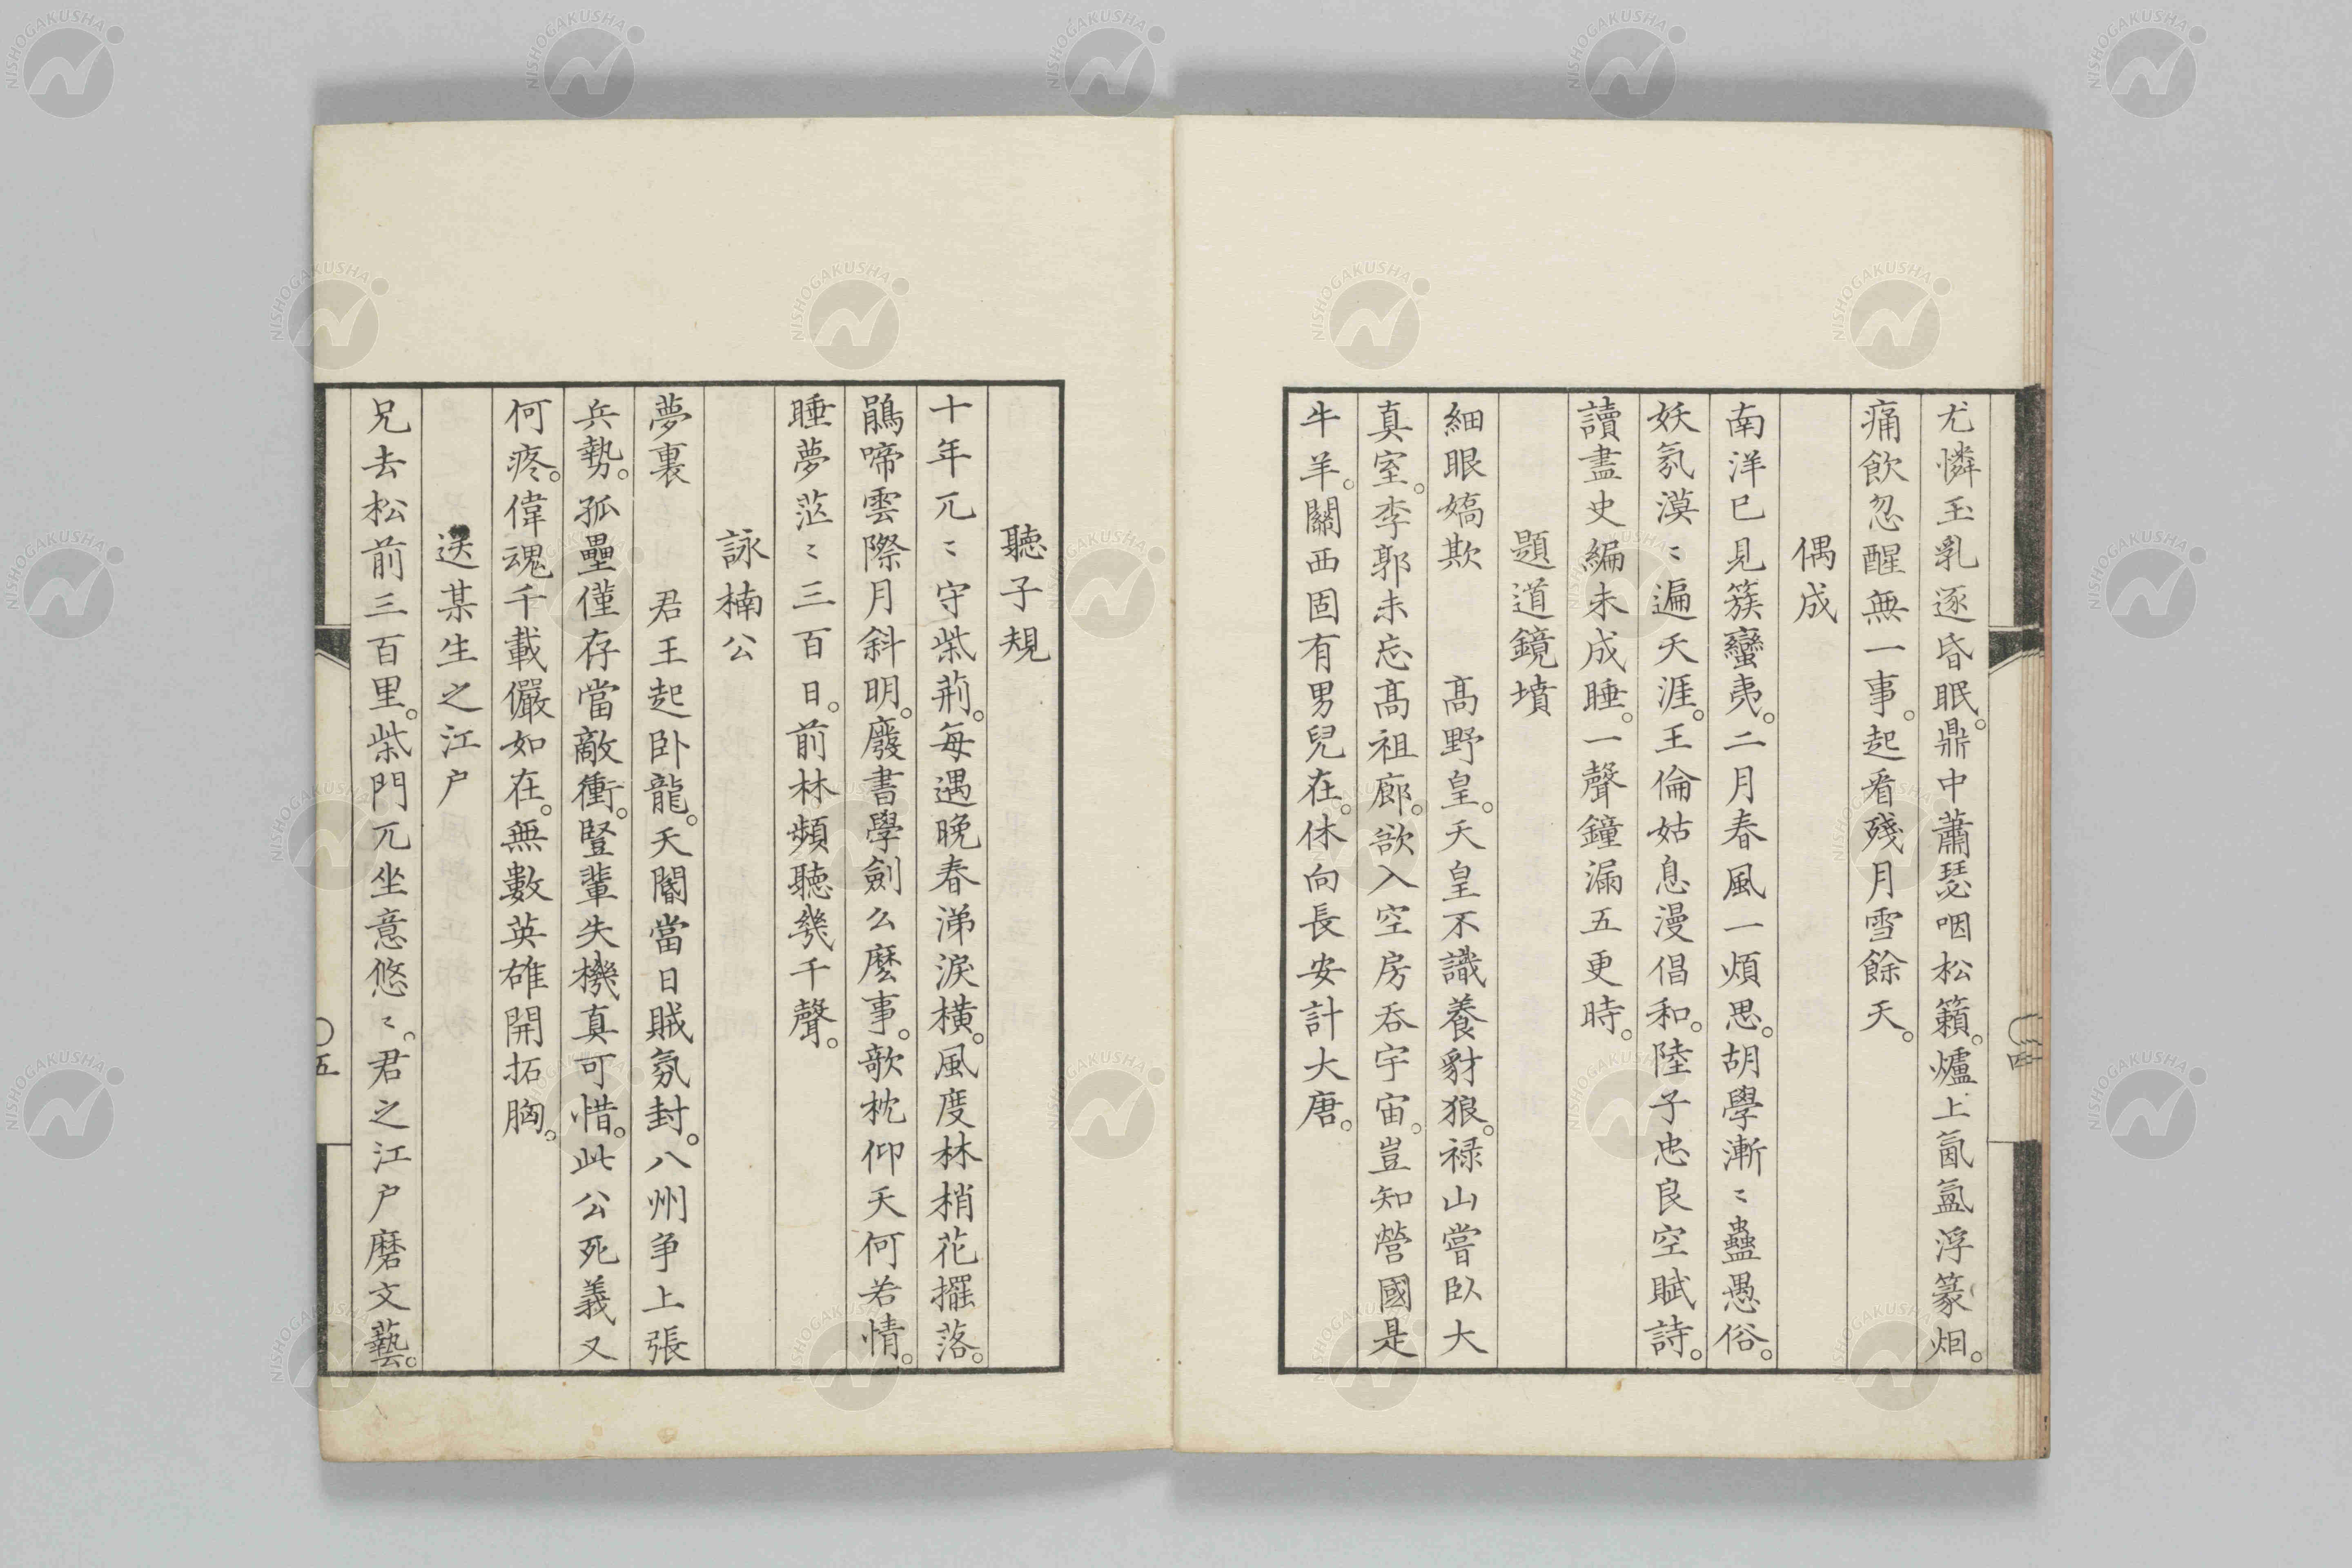 尤憐玉乳逐昏眠。鼎中蕭瑟咽松籟。爐上氤氳浮篆烟。
痛飲忽醒無一事。起看殘月雪餘天。
偶成
南洋已見簇蠻夷。二月春風一煩思。胡學漸〻蠱愚俗。
妖氛漠〻遍天涯。王倫姑息漫倡和。陸子忠良空賦詩。
讀盡史編未成睡。一聲鐘漏五更時。
題道鏡墳
細眼嬌欺　　高野皇。天皇不識養豺狼。禄山嘗臥大
真室。李郭未忘高祖廊。欲入空房呑宇宙。豈知營國是
牛羊。關西固有男兒在。休向長安計大唐。
四
聽子規
十年兀〻守柴荊。每遇晚春涕淚橫。風度林梢花擺落。
鵑啼雲際月斜明。廢書學劍么麼事。欹枕仰天何若情。
睡夢茫〻三百日。前林頻聽幾千聲。
詠楠公
夢裏　　君王起卧龍。天閽當日賊氛封。八州争上張
兵勢。孤壘僅存當敵衝。豎輩失機真可惜。此公死義又
何疼。偉魂千載儼如在。無數英雄開拓胸。
送某生之江户
兄去松前三百里。柴門兀坐意悠〻。君之江户磨文藝。
五
NISHOGAKUSHA